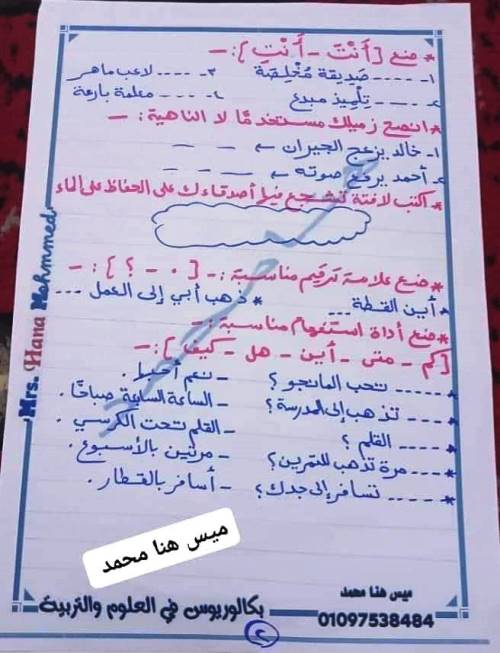 * ضع [أَنْتَ - أَنْتِ]:-
١- .... صَدِيقة مُخْلِصَة ٣- .... لاعب ماهر
٢- .... تِلْمِيذ مبدع ٤- .... معلمة بارعة
* انصح زميلك مستخدمًا لا الناهية:-
١- خالد يزعج الجيران
٢- أحمد يرفع صوته
* اكتب لافتة تشجع فيها أصدقاءك على الحفاظ على الماء
* ضع علامة ترقيم مناسبة:- [ . - ؟ ]:-
* أين القطة ... * ذهب أبي إلى العمل ...
* ضع أداة استفهام مناسبة:-
[كم - متى - أين - هل - كيف]:-
* ..... تحب المانجو؟ - نعم أحبها.
* .... تذهب إلى المدرسة؟ - الساعة السابعة صباحًا.
* .... القلم؟ - القلم تحت الكرسي.
* .... مرة تذهب للتمرين؟ - مرتين بالأسبوع.
* ..... تسافر إلى جدك؟ - أسافر بالقطار.
Mrs. Hana Mohmmed
ميس هنا محمد
ميس هنا محمد
01097538484
بكالوريوس في العلوم والتربية
٢